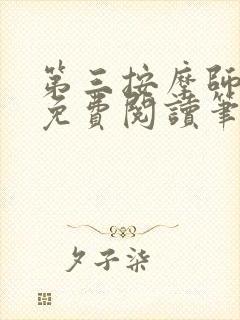 第三按摩師
免費閱讀筆
夕子柒